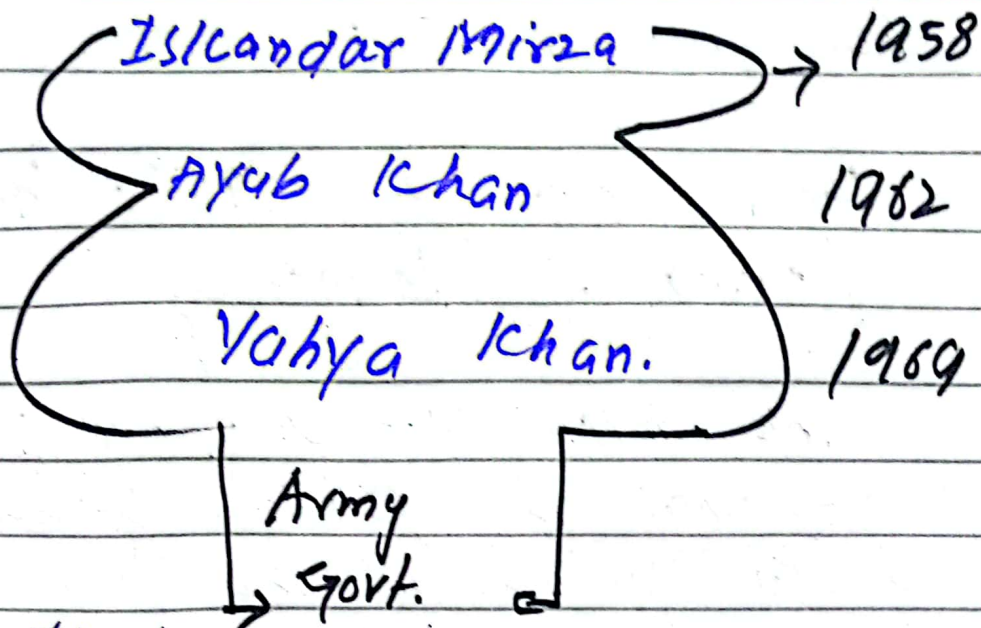 Iskandar Mirza → 1958
Ayub Khan 1962
Yahya Khan. 1969
Army
Govt.